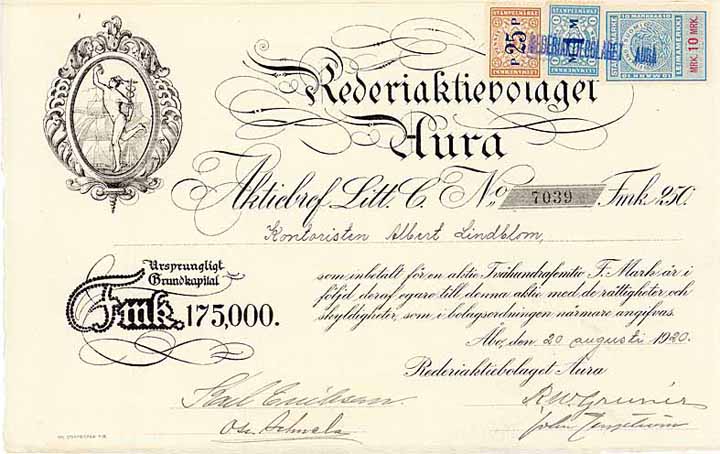 STÄMPELMÄRKE
P 25 P
M 1 M
10 MARKKAA 10
LEIMAMERKKI
10 MARK 10
MRK. 10 MRK.
REDERIAKTIEBOLAGET AURA
Rederiaktiebolaget
Aura
Aktiebref Litt. C. No 7039 Fmk. 250.
Kontoristen Albert Lindblom,
Ursprungligt
Grundkapital
Fmk. 175,000.
som inbetalt för en aktie Tvåhundrafemtio F. Mark är i
följd deraf egare till denna aktie med de rättigheter och
skyldigheter, som i bolagsordningen närmare angifvas.
Åbo, den 20 augusti 1920.
Rederiaktiebolaget Aura